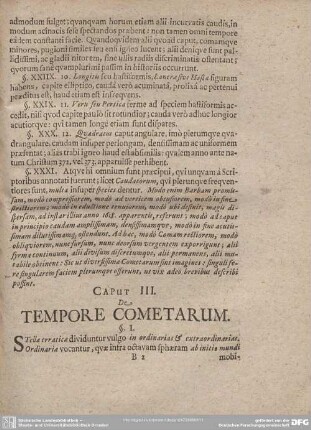 admodum fulgor: quanquam horum etiam alii incurvatis caudis, in
modum acinacis sese spectandos præbent: non tamen omni tempore
eâdem constanti facie. Quandoquidem alii quoad caput, comamque
minores, pugioni similes seu ensi igneo lucent; alii denique sunt pal-
lidissimi, ac gladii nitorem, sine ullis radiis discriminatis ostentant;
quorum sane quamplurimi passim in historiis occurrunt.
§. XXIIX. 10. Longites seu hastiformis, Lonceastro Hastæ figuram
habens, capite elliptico, caudâ verò acuminatâ, prolixâ ac pertenui
præditus est, haud etiam est infrequens.
§. XXIX. 11. Verù seu Pertica ferme ad speciem hastiformis ac-
cedit, nisi quod capite paulò sit rotundior; cauda verò adhuc longior
acutiorque: qui tamen longè etiam sunt dispares.
§. XXX. 12. Quadratus caput angulare, imò plerumque qua-
drangulare, caudam insuper perlongam, densissimam ac uniformem
præsumit; alias trabi igneo haud est absimilis: qualem anno ante na-
tum Christum 372, vel 373. apparuisse perhibent.
§. XXXI. Atque hi omnium sunt præcipui, qui unquam à Scri-
ptoribus annotati fuerunt; licet Caudatorum, qui plerunque frequen-
tiores sunt, multæ insuper species dentur. Modò enim Barbam promis-
sam, modò compressiorem, modò ad verticem obtusiorem, modò in fine
strictiorem; modò in eductione tenuiorem, modò ubi desiit, magis di-
spersam, ad instar illius anno 1618. apparentis, referunt; modò ad caput
in principio caudam amplissimam, densissimamque, modò in fine acutis-
simam dilutissimamque, ostendunt. Adhæc, modò Comam rectiorem, modò
obliquiorem, nunc sursum, nunc deorsum vergentem exporrigunt; alii
firmâ continuam, alii divisam discretamque, alii permanentem, alii mo-
tabilem obtinent: Sic ut diversissimæ Cometarum sint imagines: singuli fe-
re singularem faciem plerumque assurgunt, ut vix adeò brevibus describi
possint.
CAPUT III.
De
TEMPORE COMETARUM.
§. I.
STellæ erraticæ dividuntur vulgo in ordinarias & extraordinarias.
Ordinariæ vocantur, quæ infra octavam sphæram ab initio mundi
B 2
mobi-